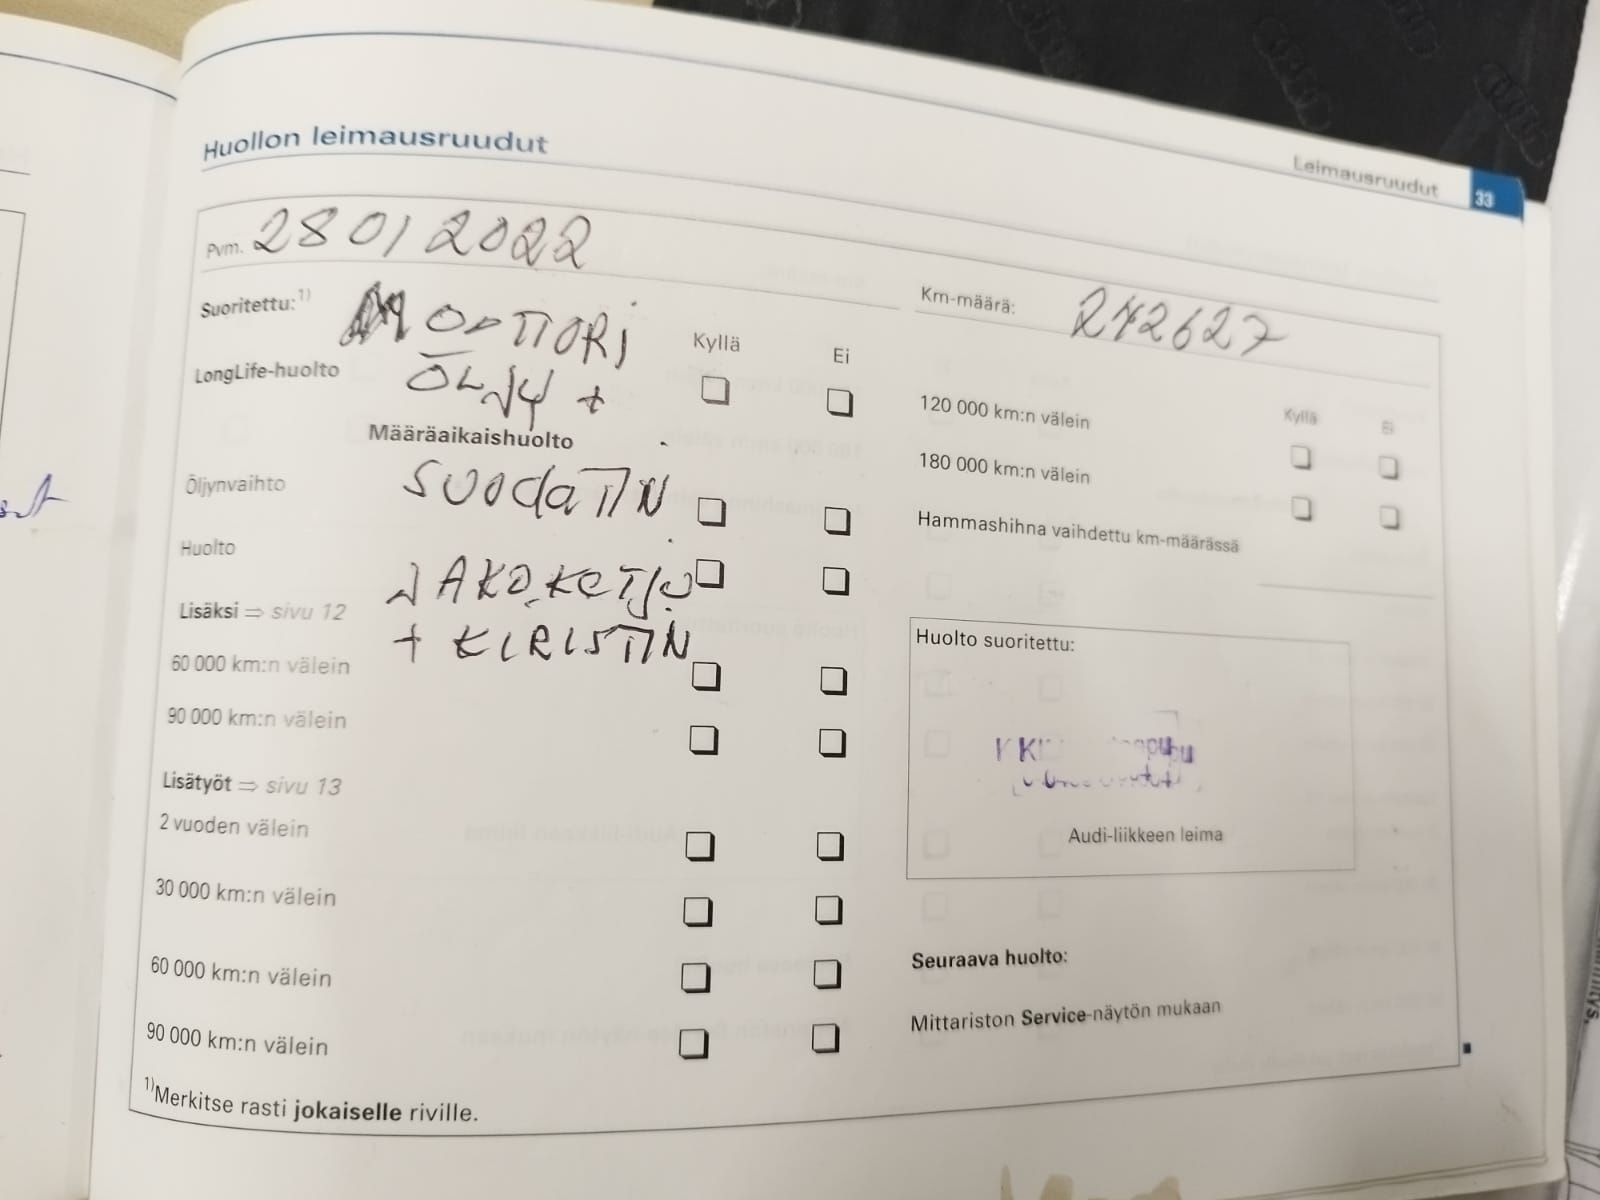 Leimausruudut 33
Huollon leimausruudut
Pvm. 28 01 2022
Km-määrä: 242627
Suoritettu:1) MOOTTORI
Kyllä Ei
LongLife-huolto ÖLJY +
Määräaikaishuolto
Öljynvaihto SUODATIN
Huolto
JAKOKETJU
Lisäksi ⇒ sivu 12
+ KIRISTIN
60 000 km:n välein
90 000 km:n välein
Lisätyöt ⇒ sivu 13
2 vuoden välein
30 000 km:n välein
60 000 km:n välein
90 000 km:n välein
1)Merkitse rasti jokaiselle riville.
Kyllä Ei
120 000 km:n välein
180 000 km:n välein
Hammashihna vaihdettu km-määrässä
Huolto suoritettu:
Audi-liikkeen leima
Seuraava huolto:
Mittariston Service-näytön mukaan